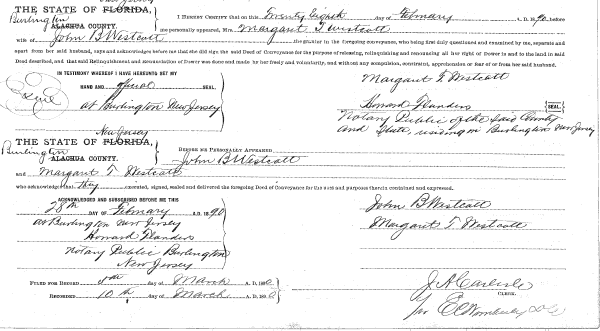 New Jersey
THE STATE OF FLORIDA,
Burlington
ALACHUA COUNTY.
I HEREBY CERTIFY that on this Twenty Eighth day of February A. D. 1890, before
me personally appeared, Mrs. Margant T Westcott
wife of John B Westcott the grantor in the foregoing conveyance, who being first duly questioned and examined by me, separate and
apart from her said husband, says and acknowledges before me that she did sign the said Deed of Conveyance for the purpose of releasing, relinquishing and renouncing all her right of Dower in and to the land in said
Deed described, and that said Relinquishment and Renunciation of Dower was done and made by her freely and voluntarily, and without any compulsion, constraint, apprehension or fear of or from her said husband.
IN TESTIMONY WHEREOF I HAVE HEREUNTO SET MY
HAND AND official SEAL
at Burlington New Jersey
Seal
Margant T. Westcott
Howard Flanders SEAL
Notary Public of the said County
and State, residing in Burlington New Jersey
New Jersey
THE STATE OF FLORIDA,
Burlington
ALACHUA COUNTY.
BEFORE ME PERSONALLY APPEARED
John B Westcott
and Margant T. Westcott
who acknowledge that they executed, signed, sealed and delivered the foregoing Deed of Conveyance for the uses and purposes therein contained and expressed.
ACKNOWLEDGED AND SUBSCRIBED BEFORE ME THIS
28th DAY OF February A.D. 1890
at Burlington New Jersey
Howard Flanders
Notary Public Burlington
New Jersey
John B Westcott
Margant T. Westcott
FILED FOR RECORD 8th day of March A. D. 1890
RECORDED 10th day of March A. D. 1890
J A Carlisle
CLERK.